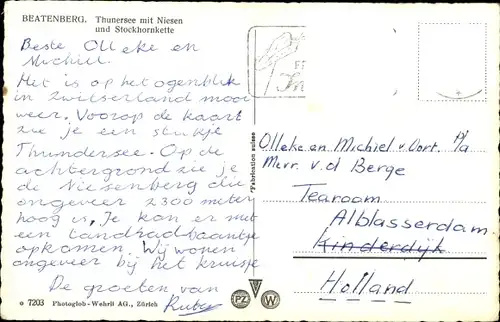 BEATENBERG. Thunersee mit Niesen
und Stockhornkette
Beste Olleke en
Michiel.
Het is op het ogenblik
in Zwitserland mooi
weer. Voorop de kaart
zie je een stukje
Thundersee. Op de
achtergrond zie je
de Niesenberg die
ongeveer 2300 meter
hoog is, Je kan er met
een tandradbaantje
opkomen. Wij wonen
ongeveer bij het kruisje
De groeten van
Ruby
o 7203 Photoglob-Wehrli AG., Zürich
Fabrication suisse
PZ W
Olleke en Michiel v. Oort. P/a
Mevr. v. d Berge
Tearoom
Alblasserdam
Kinderdijk
Holland